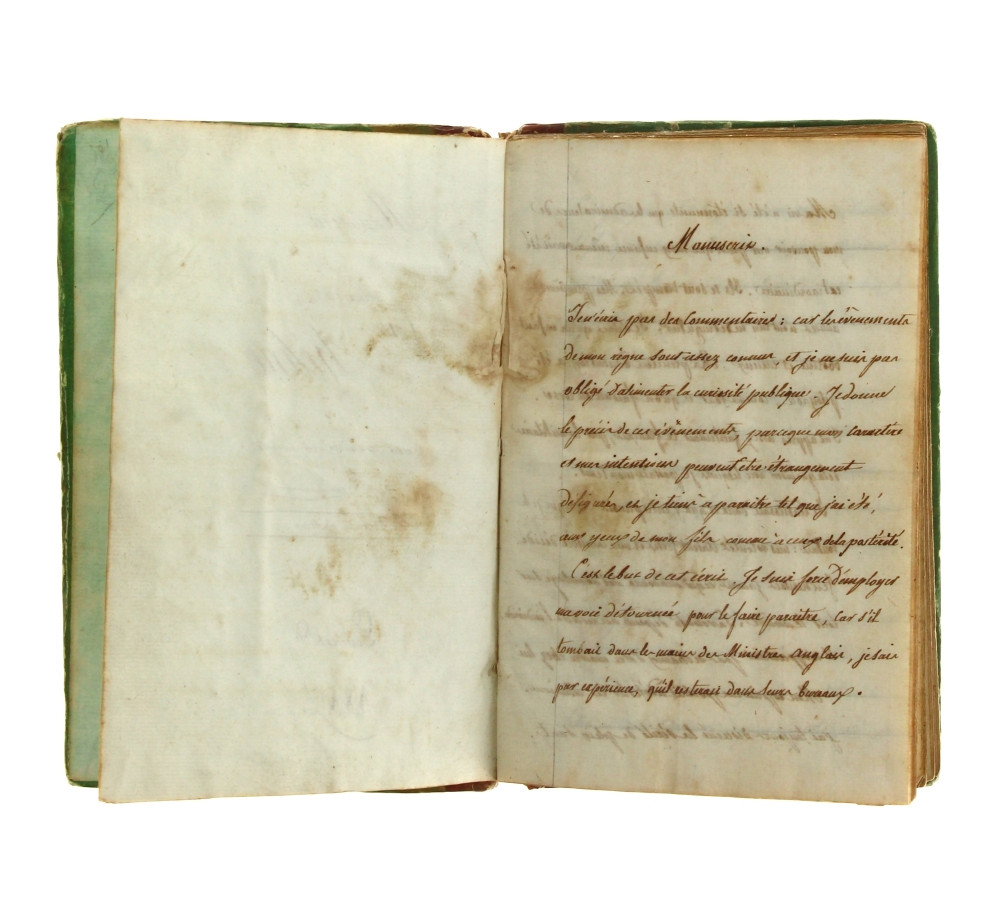 Manuscrit.
Je n'écris pas des Commentaires : car les évènements
de mon règne sont assez connus, et je ne suis pas
obligé d'alimenter la curiosité publique. Je donne
le précis de ces évènements, parceque mon caractère
et mes intentions peuvent être étrangement
défigurés, et je tiens à paroitre tel que j'ai été,
aux yeux de mon fils comme à ceux de la postérité.
C'est le but de cet écrit. Je suis forcé d'employer
une voie détournée pour le faire paraitre, car s'il
tombait dans les mains des Ministres anglais, je sais
par expérience, qu'il resterait dans leurs bureaux.